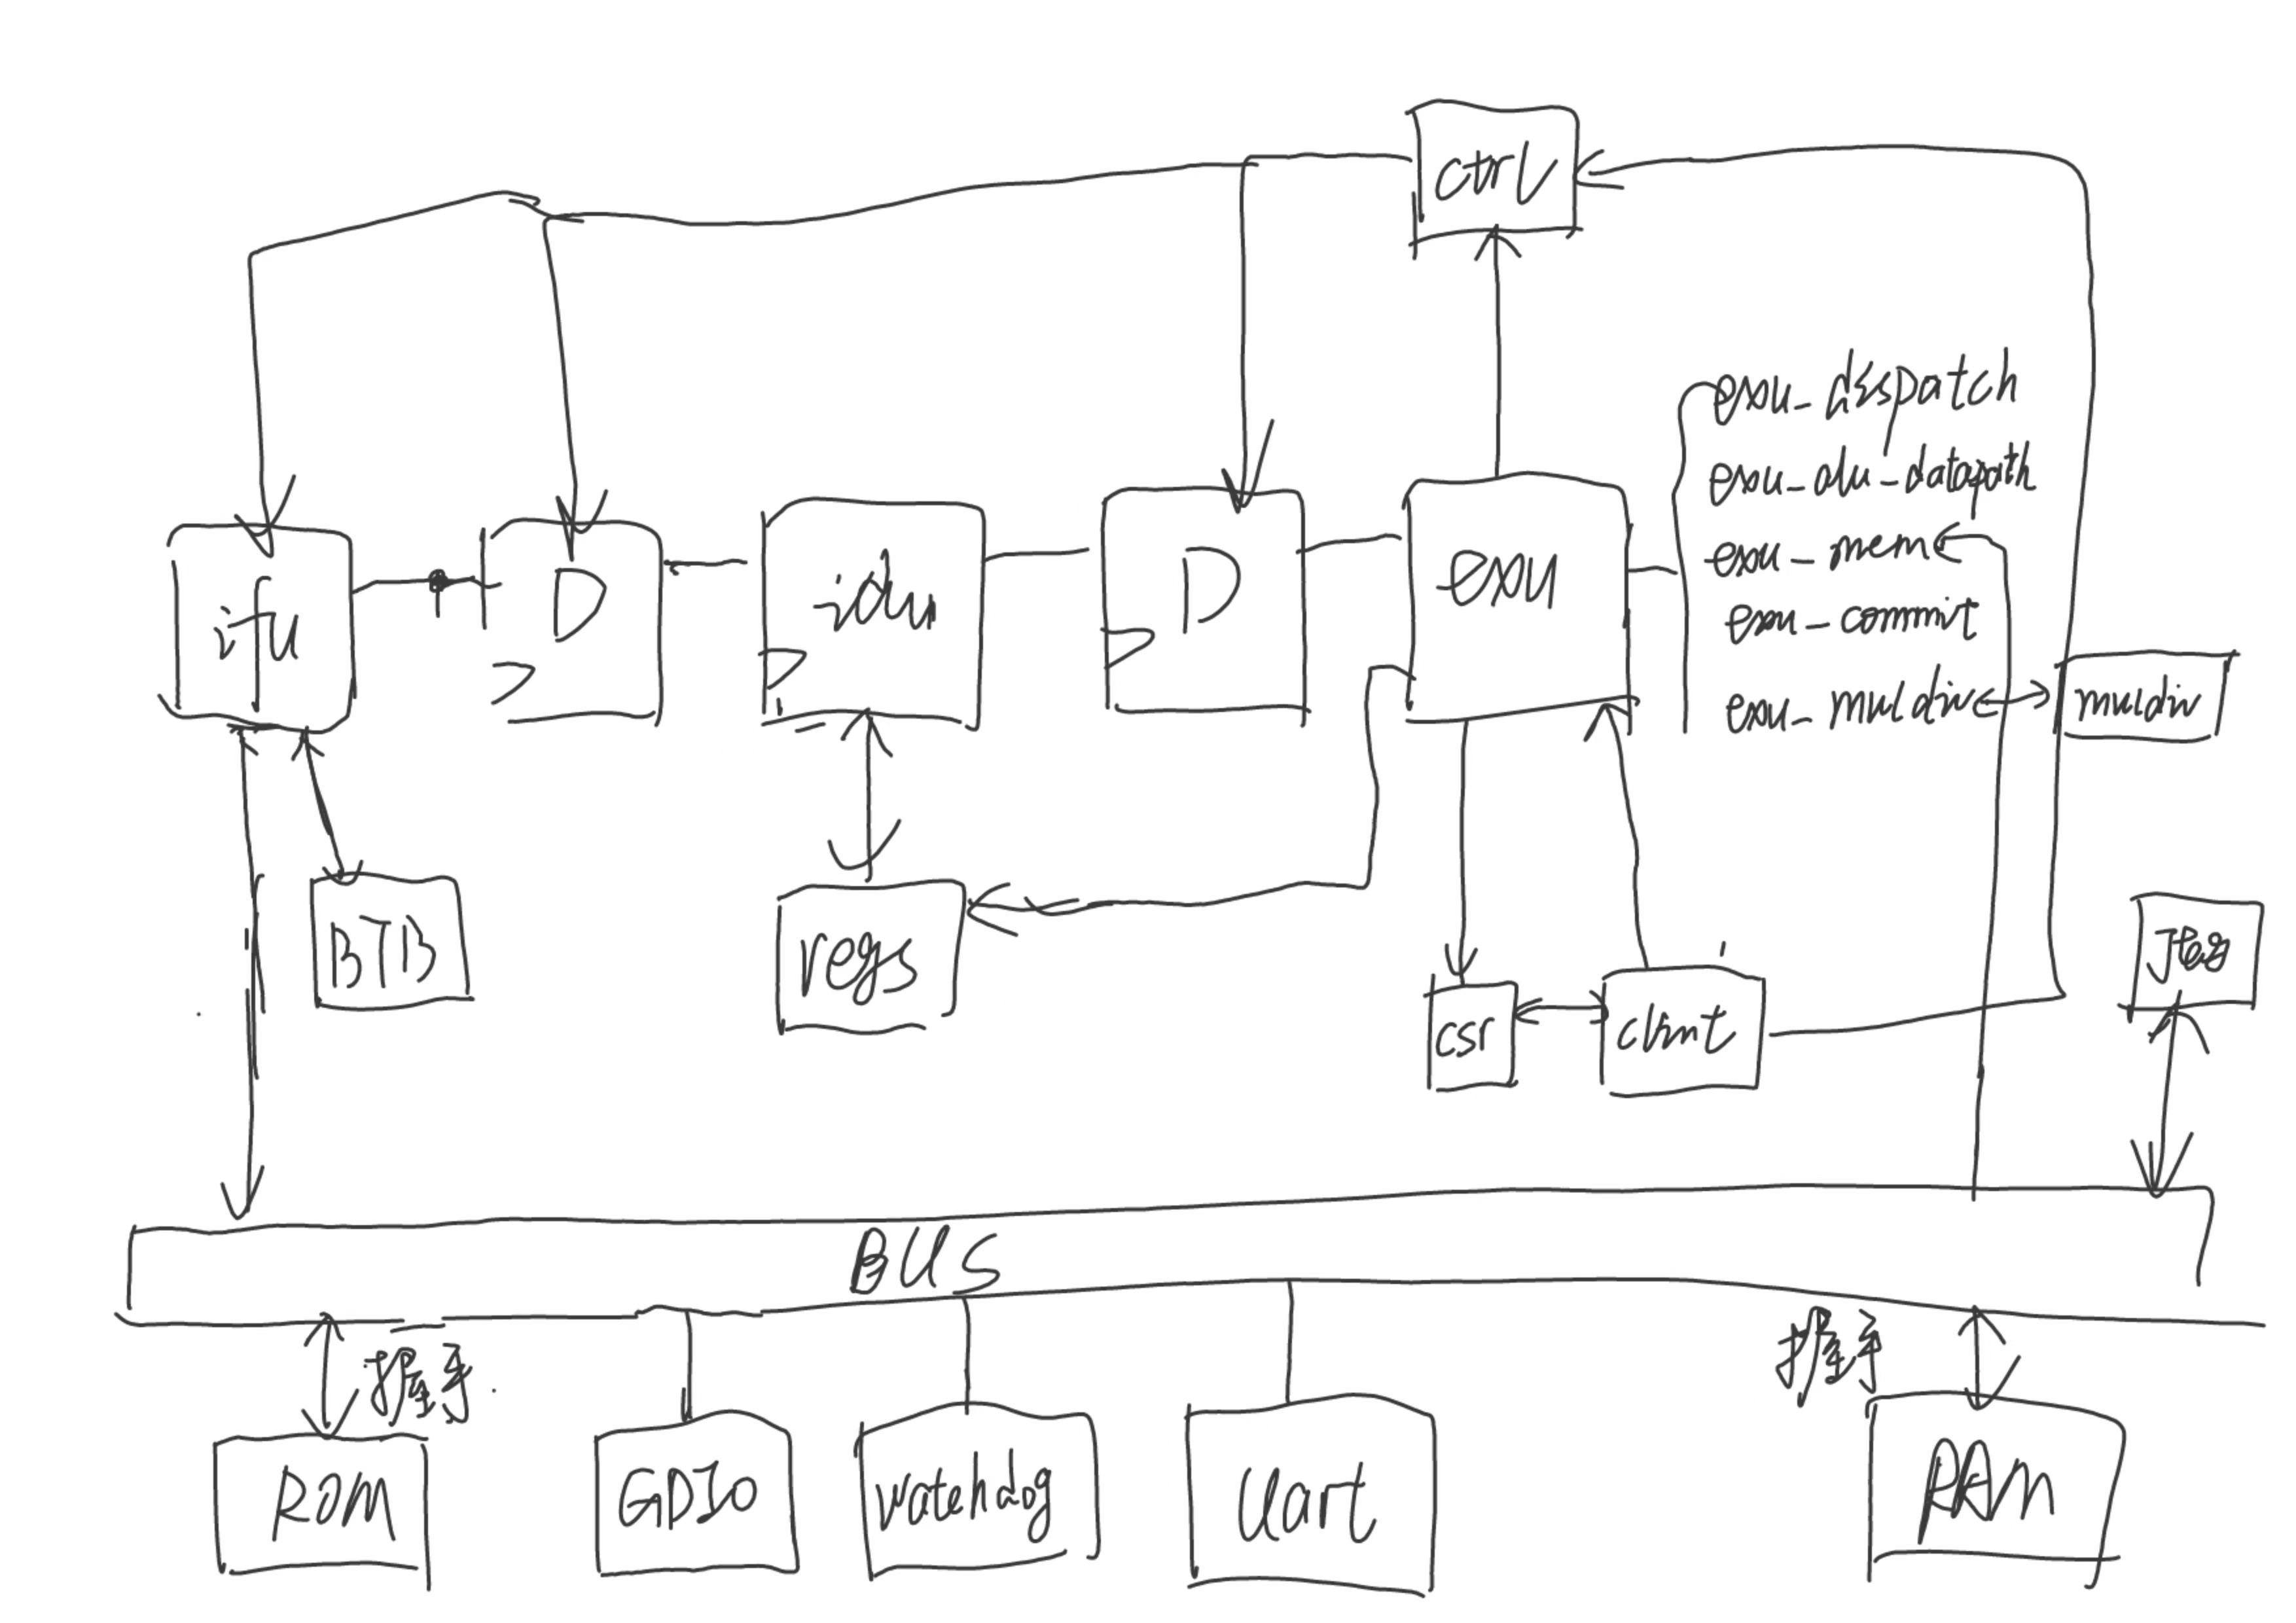 ctrl
exu_dispatch
exu_alu_datapath
exu_mem
exu_commit
exu_muldiv
muldiv
ifu
D
idu
D
exu
BTB
regs
csr
clint
Jtag
BUS
握手
握手
ROM
GPIO
watchdog
Uart
RAM